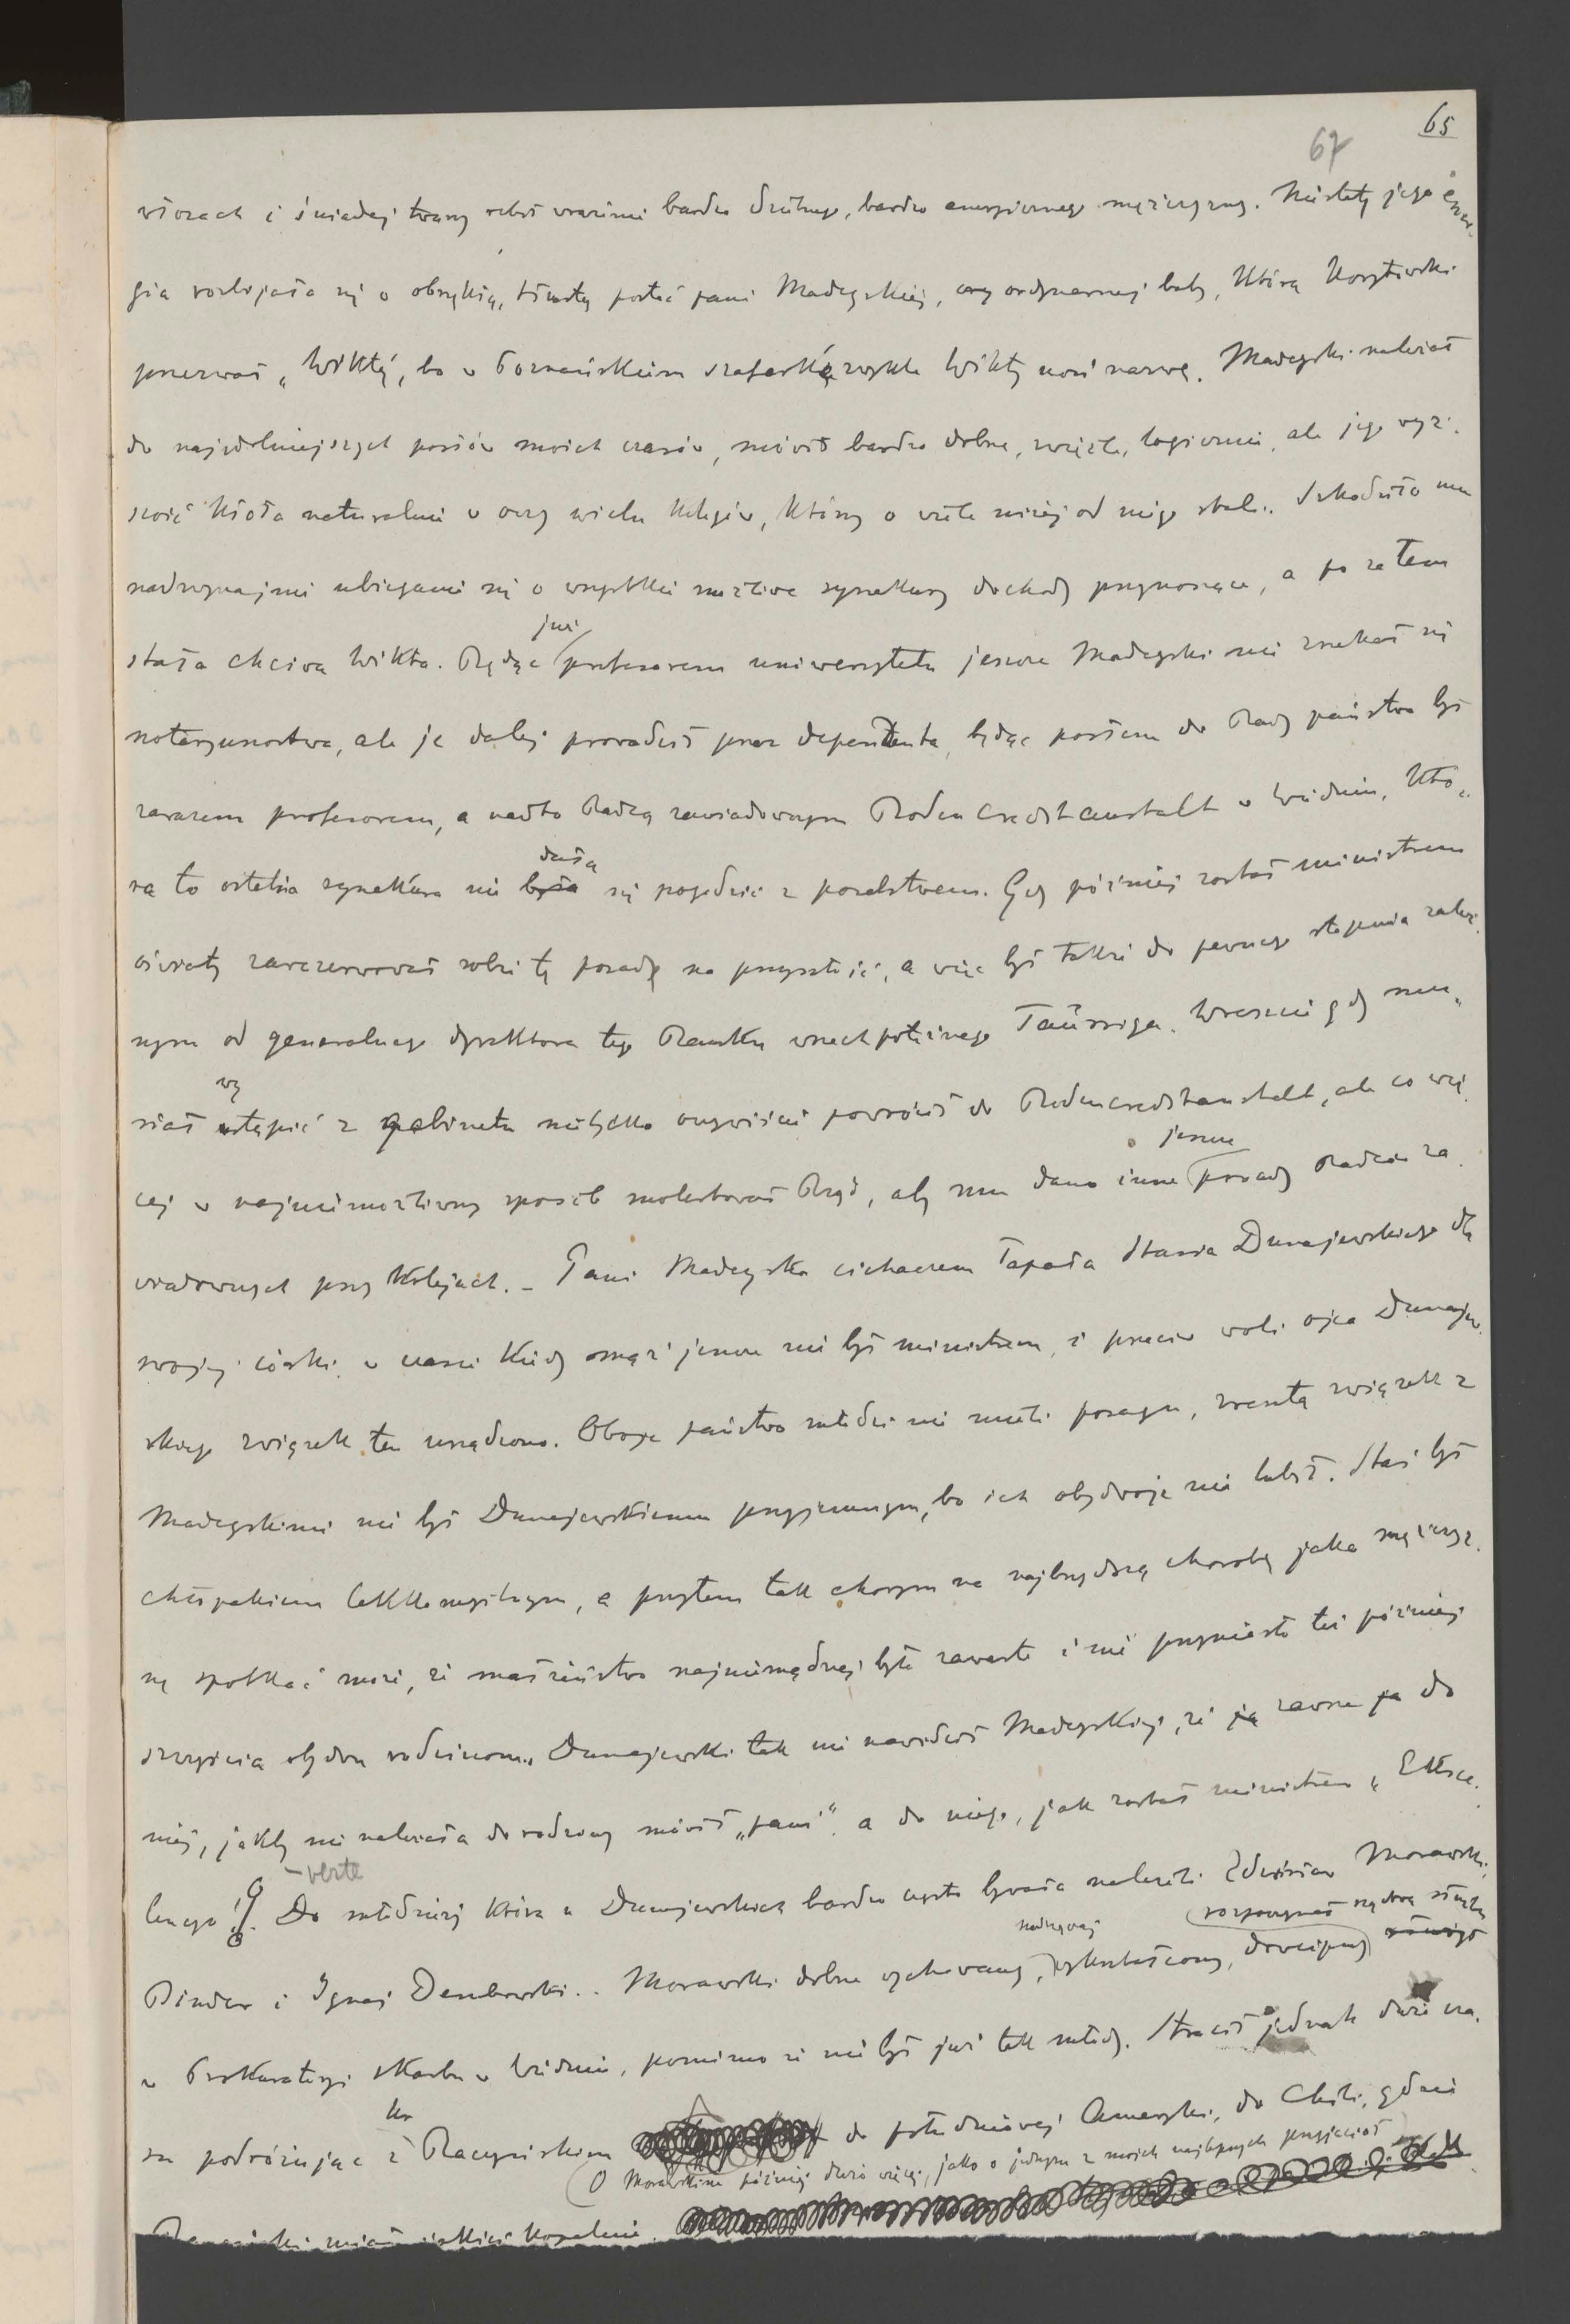 65
67
włosach i śniadej twarzy robił wrażenie bardzo dzielnego, bardzo energicznego mężczyzny. Niestety jego ener-
gia rozbijała się o obrzękłą, tłustą postać pani Madeyskiej, czy ordynarnej baby, którą Korytowski
przezwał „Wiktą", bo w Poznańskiem szafarka zwykle Wikty nosi nazwę. Madeyski należał
do najzdolniejszych posłów moich czasów, mówił bardzo dobrze, zwięźle, logicznie, ale jego wyż-
szość kłoła naturalnie w oczy wielu kolegów, którzy o wiele niżej od niego stali. Szkodziło mu
nadzwyczajnie ubieganie się o wszystkie możliwe synekury dochody przynoszące, a po za tem
stała chciwa Wikta. Będąc już profesorem uniwersytetu jeszcze Madeyski nie zrzekał się
notaryuszostwa, ale je dalej prowadził przez dependenta, będąc posłem do Rady państwa był
zarazem profesorem, a nadto Radcą zawiadowczym Bodencreditanstalt w Wiedniu, któ-
ra to ostatnia synekura nie była dała się pogodzić z poselstwem. Gdy później został ministrem
oświaty zarezerwował sobie tę posadę na przyszłość, a więc był także do pewnego stopnia zależ-
nym od generalnego dyrektora tego Banku wszechpotężnego Taussiga. Wreszcie gdy mu-
siał wystąpić z gabinetu nietylko oczywiście powrócił do Bodencreditanstalt, ale co wię-
cej w najniemożliwszy sposób molestował Rząd, aby mu dano inne jeszcze posady Radców za-
wiadowczych przy kolejach. – Pani Madeyska cichaczem łapała Stasia Dunajewskiego dla
swojej córki, w czasie kiedy mąż jeszcze nie był ministrem, i przeciw woli ojca Dunajew-
skiego związek ten urządzono. Oboje państwo młodzi nie mieli posagu, zresztą związek z
Madeyskimi nie był Dunajewskiemu przyjemnym, bo ich obydwoje nie lubił. Staś był
chłopakiem lekkomyślnym, a przytem tak chorym na najbrzydszą chorobę jaka mężczyz-
nę spotkać może, że małżeństwo najniemądrzej było zawarte i nie przyniosło też później
szczęścia obydwu rodzinom. Dunajewski tak nie nawidził Madeyskiej, że ją zawsze ja do
niej, jakby nie należała do rodziny mówił „pani", a do niego, jak został ministrem „Eksce-
lencyo"! – verte Do młodzieży która u Dunajewskich bardzo często bywała należeli Zdzisław Morawski,
Pindor i Ignaś Dembowski.. Morawski dobrze wychowany, nadzwyczaj wykształcony, dowcipny rozpoczynał rządową służbę
w Prokuratoryi skarbu w Wiedniu, pomimo że nie był już tak młody. Stracił jednak dużo cza-
su podróżując z hr Raczyńskim do południowej Ameryki, do Chili, gdzie
O Morawskim później dużo więcej, jako o jednym z moich najlepszych przyjaciół
Raczyński miał jakieś kopalnie.